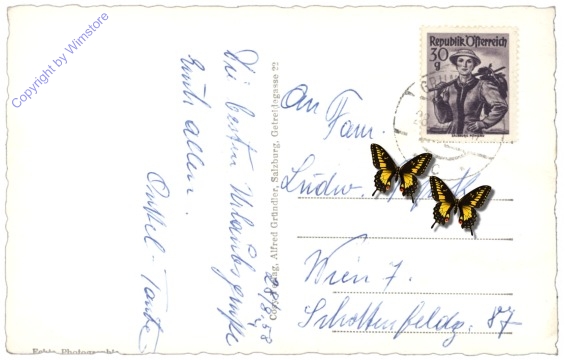 Die besten Urlaubsgrüße
Euch allen.
Onkel - Tante
28/8.58
An
Fam.
Ludw.
Wien 7.
Schottenfeldg. 87
Republik Österreich
30
g
Copyright by Wimstore
Verlag, Alfred Gründler, Salzburg, Getreidegasse 22
Echte Photographie